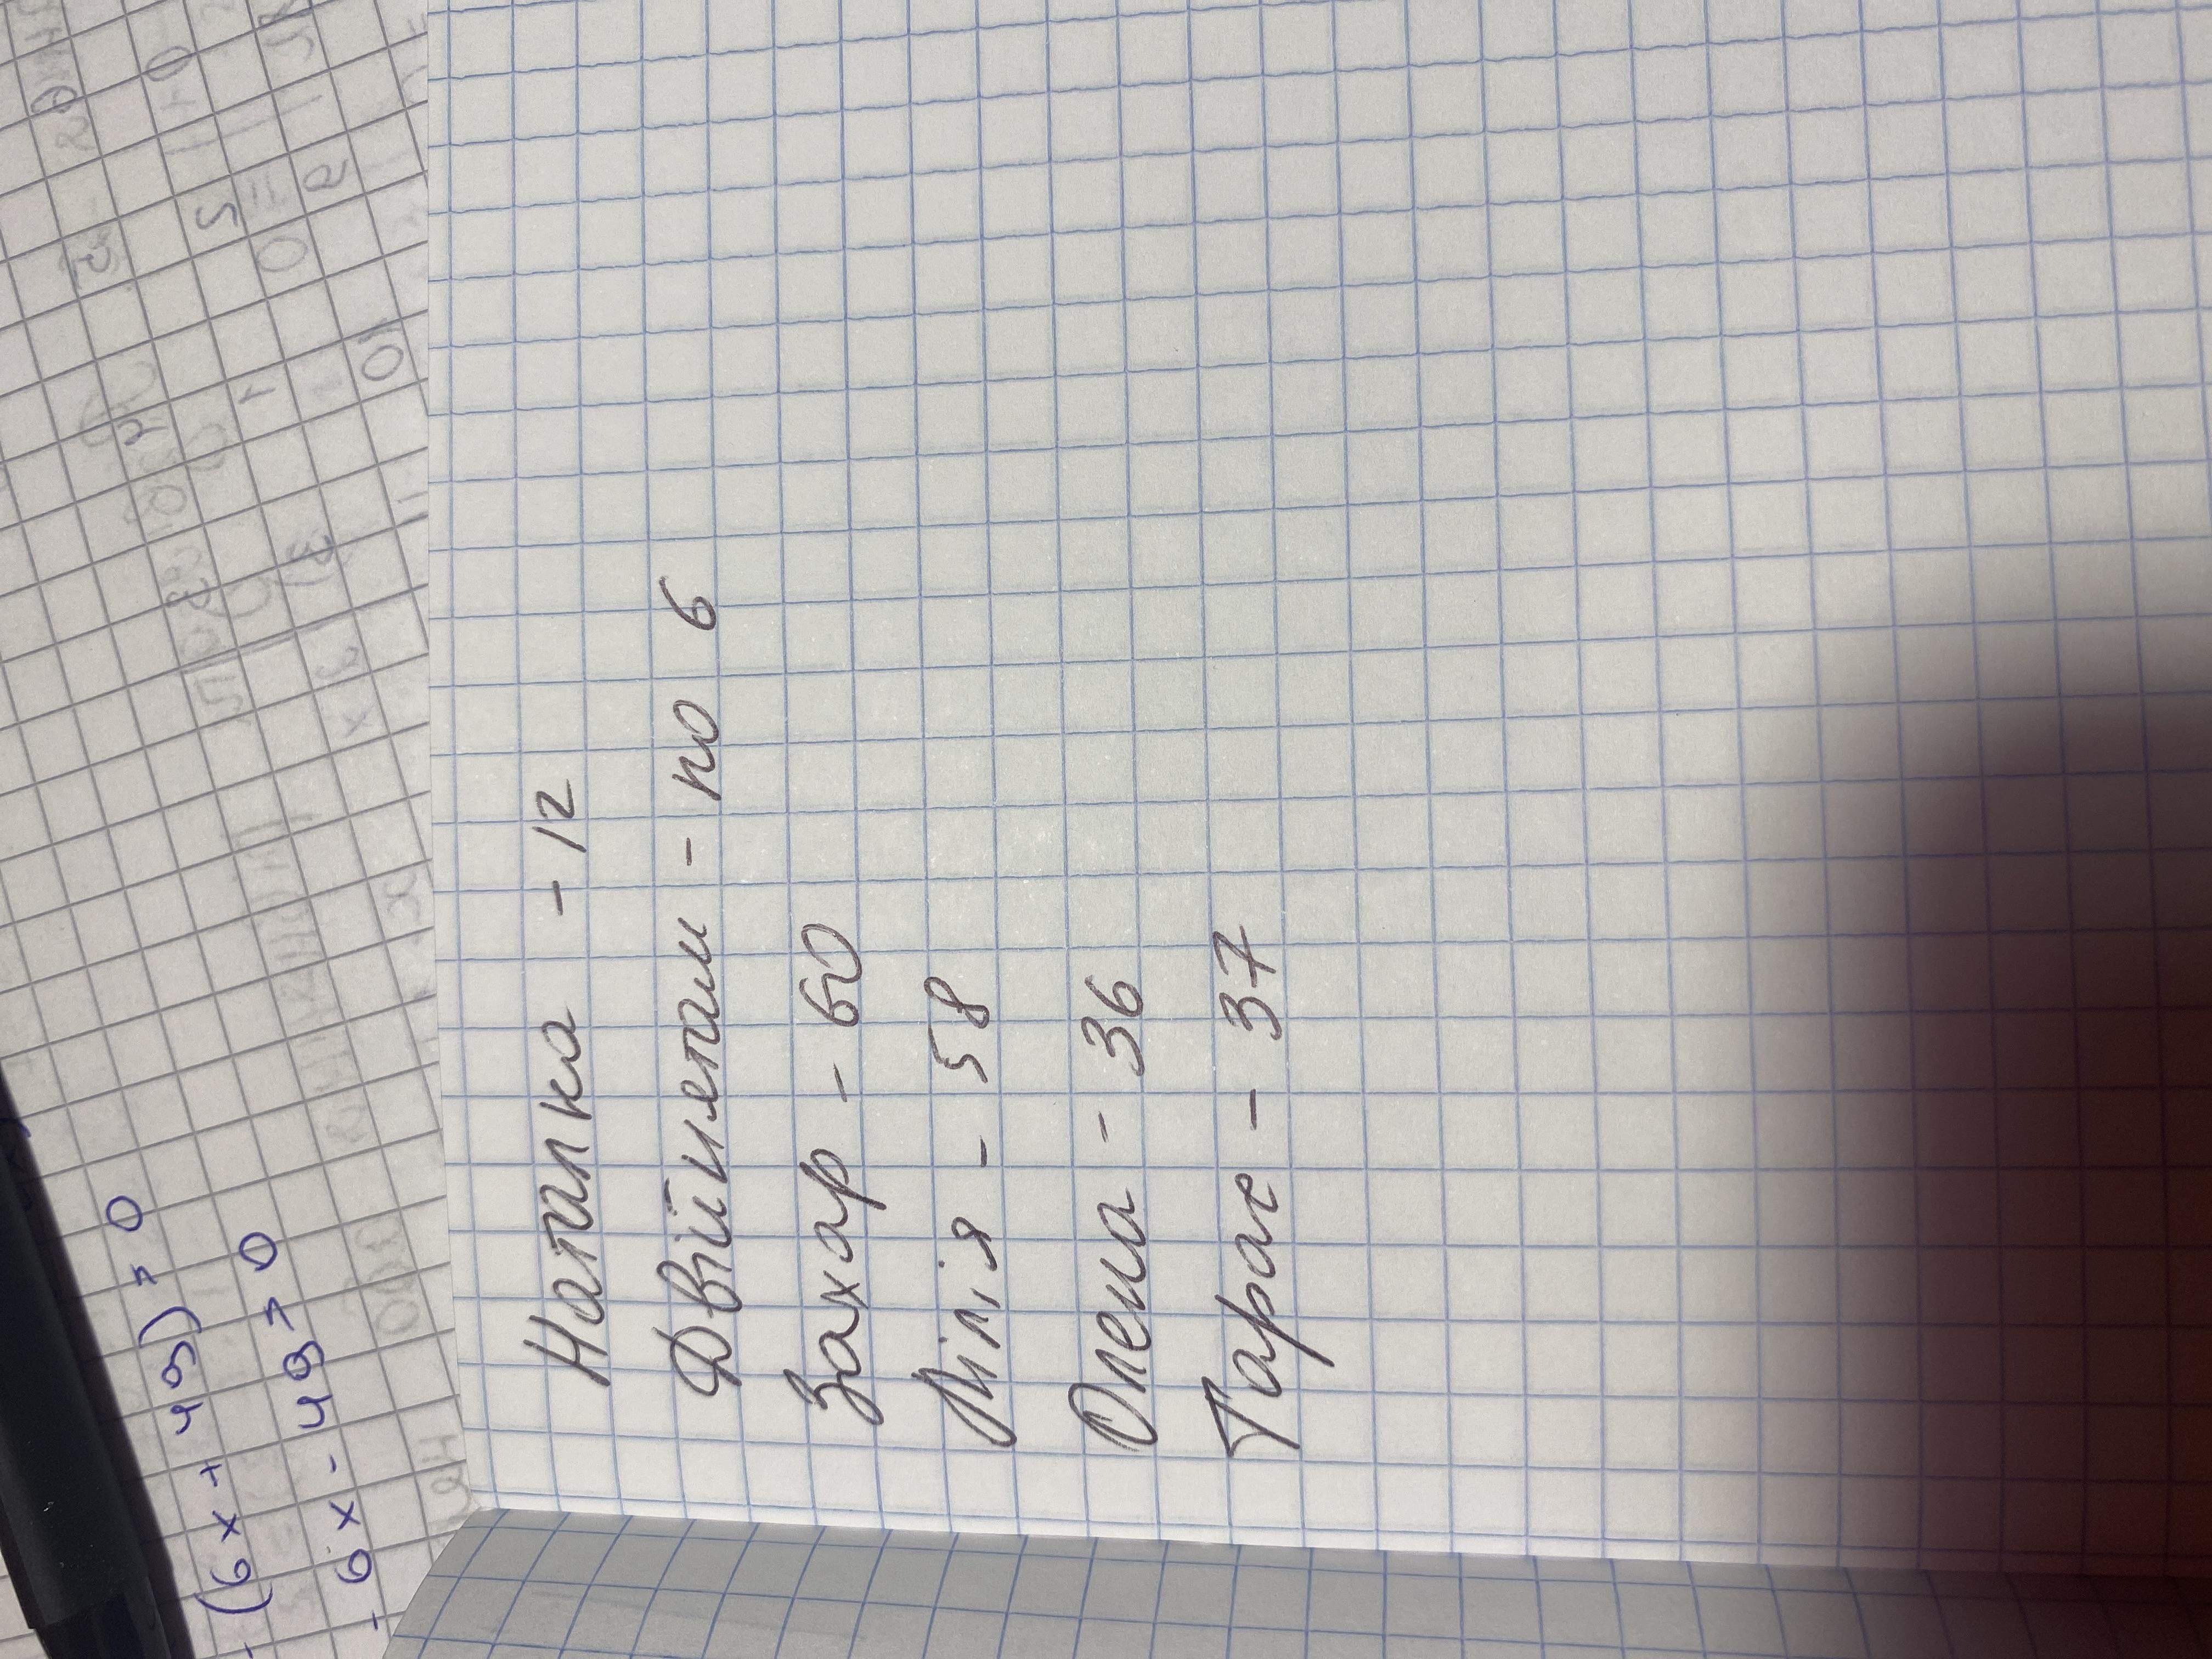 Наталка - 12
Двійнятам - по 6
Захар - 60
Лілія - 58
Олена - 36
Тарас - 37
- (6x + 49) = 0
- 6x - 49 = 0